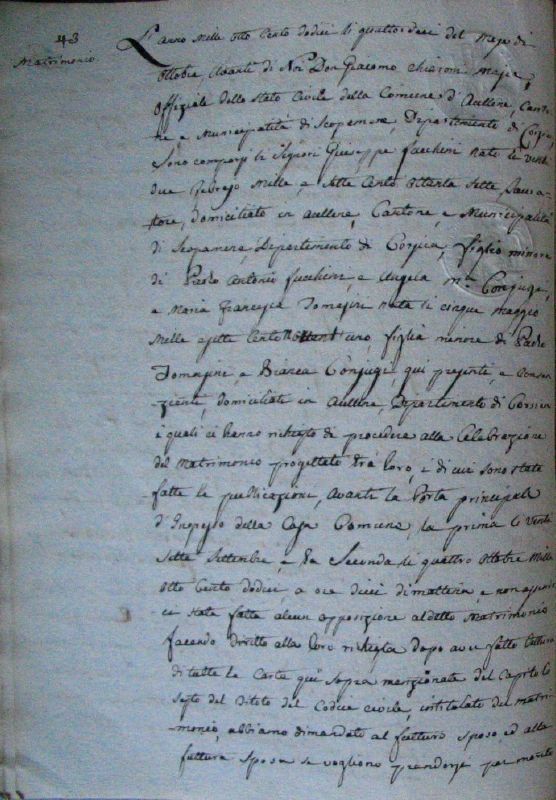 43
Matrimonio
L'anno Mille otto Cento dodici li quattordeci del Mese di
Ottobre, Avanti di Noi Don Giacomo Chiaroni Maire,
Offiziale dello Stato Civile della Comune d'Aullene, Canto-
ne e Municipalità di Scopamene, Dipartimento di Corsica,
Sono comparsi li Signori Giuseppe Lucchini nato li venti
due Mille, e Sette Cento Ottanta Sette,
domiciliato in Aullene, Cantone, e Municipalità
di Scopamene, Dipartimento di Corsica, figlio minore
di Paolo Antonio Lucchini, e Angela Ma Conjugi,
e Maria Francesca Tomasini nata li cinque Maggio
Mille e sette Cento uno, figlia minore di
Tomasini, e Bianca Conjugi, qui presenti, e Consen-
zienti, domiciliati in Aullene, Dipartimento di Corsica
i quali ci hanno richiesto di procedere alla Celebrazione
del Matrimonio progettato trà loro, e di cui sono state
fatte le publicazioni, Avanti la Porta principale
d'Ingresso della Casa Comune, la prima li Venti
Sette Settembre, e la Seconda li quattro Ottobre Mille
Otto Cento dodici, a ore dieci di mattina, e non essen-
ci stata fatta alcun opposizione al detto Matrimonio
facendo diritto alla loro richiesta dopo aver fatto lettura
di tutte le Carte quì sopra menzionate del Capitolo
Sesto del Titolo del Codice civile, intitolato del matri-
monio, abbiamo dimandato al futturo sposo, ed alla
futtura sposa se vogliono prendersi per marito